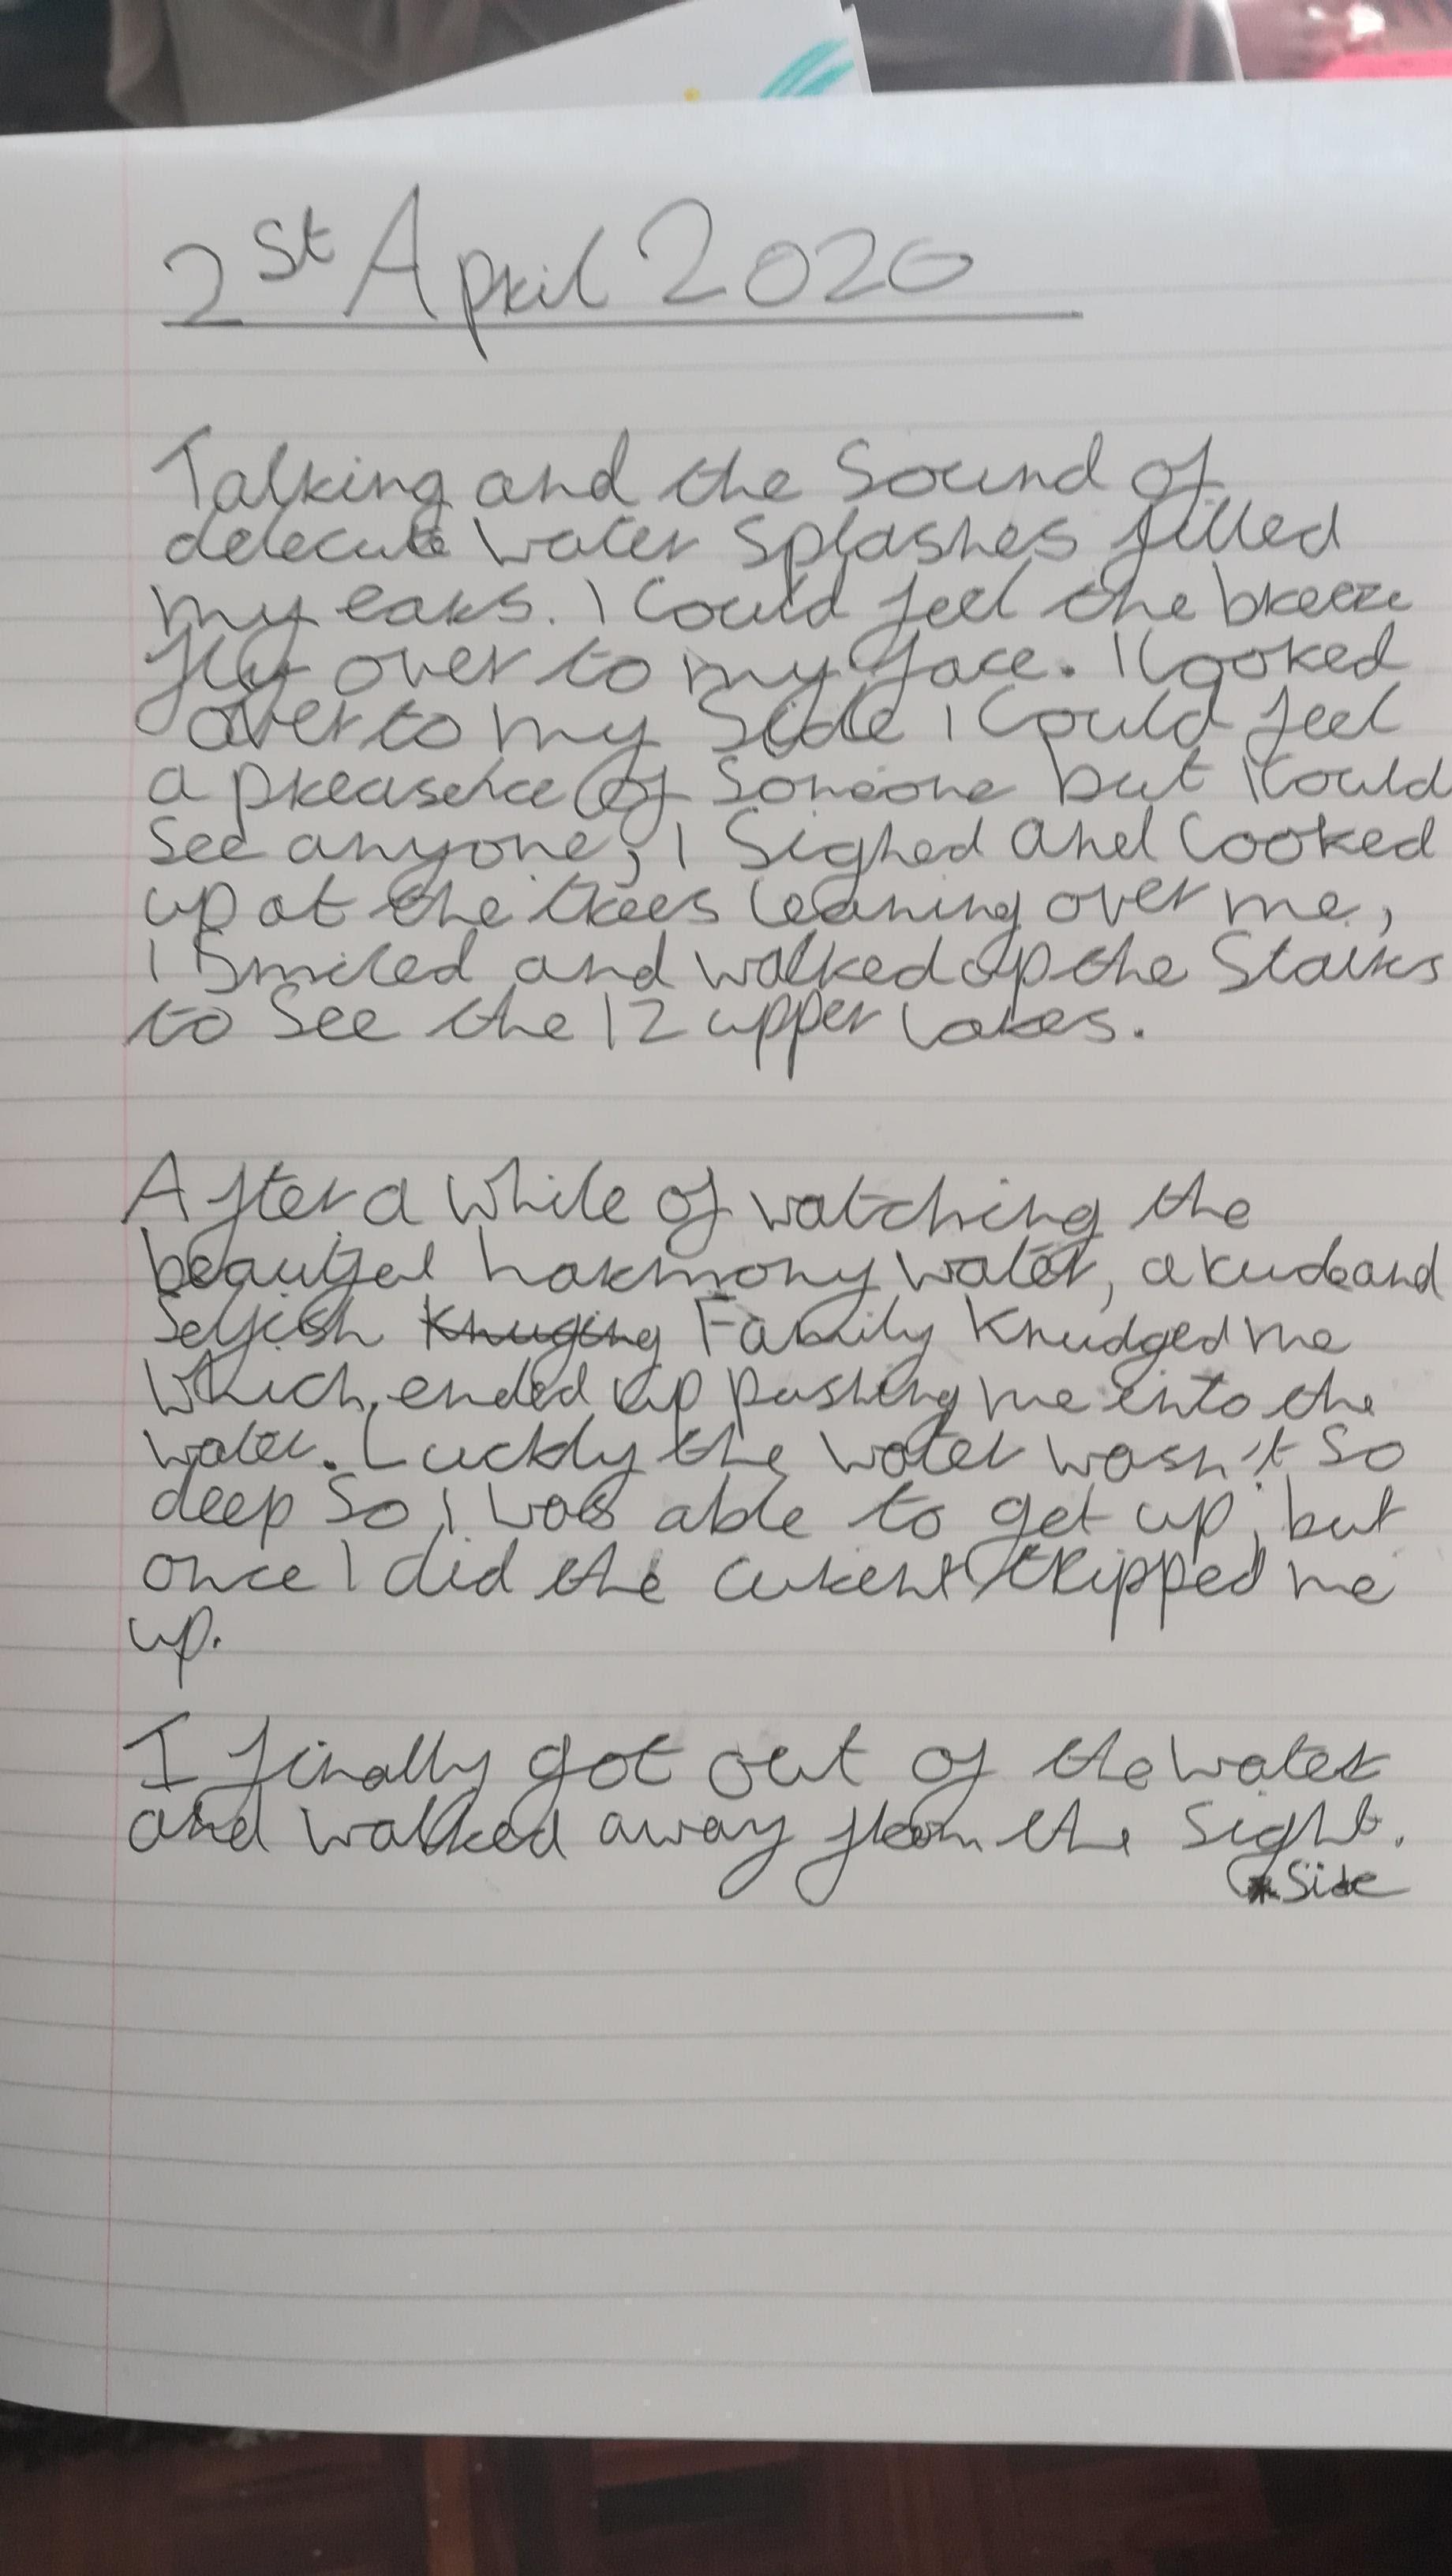 2st April 2020
Talking and the Sound of
delecate water splashes filled
my ears. I Could feel the breeze
fly over to my face. I looked
over to my Side I Could feel
a preasence of Someone but I Could
See anyone, I Sighed and looked
up at the trees leaning over me,
I Smiled and walked up the Stairs
to See the 12 upper lakes.
After a While of watching the
beautiful harmony water, a rude and
Selfish Knuging Family Knudged me
Which, ended up pushing me into the
water. Luckly the water wasn't So
deep So I was able to get up, but
once I did the curent tripped me
up.
I finally got out of the water
and walked away from the Sight.
*Side